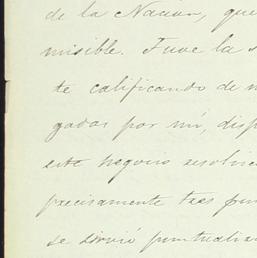 de la Nación, que
misible. Tuve la s
te calificando de n
gados por mí, disp
este negocio resolvie
precisamente tres pun
se sirvió puntualizar